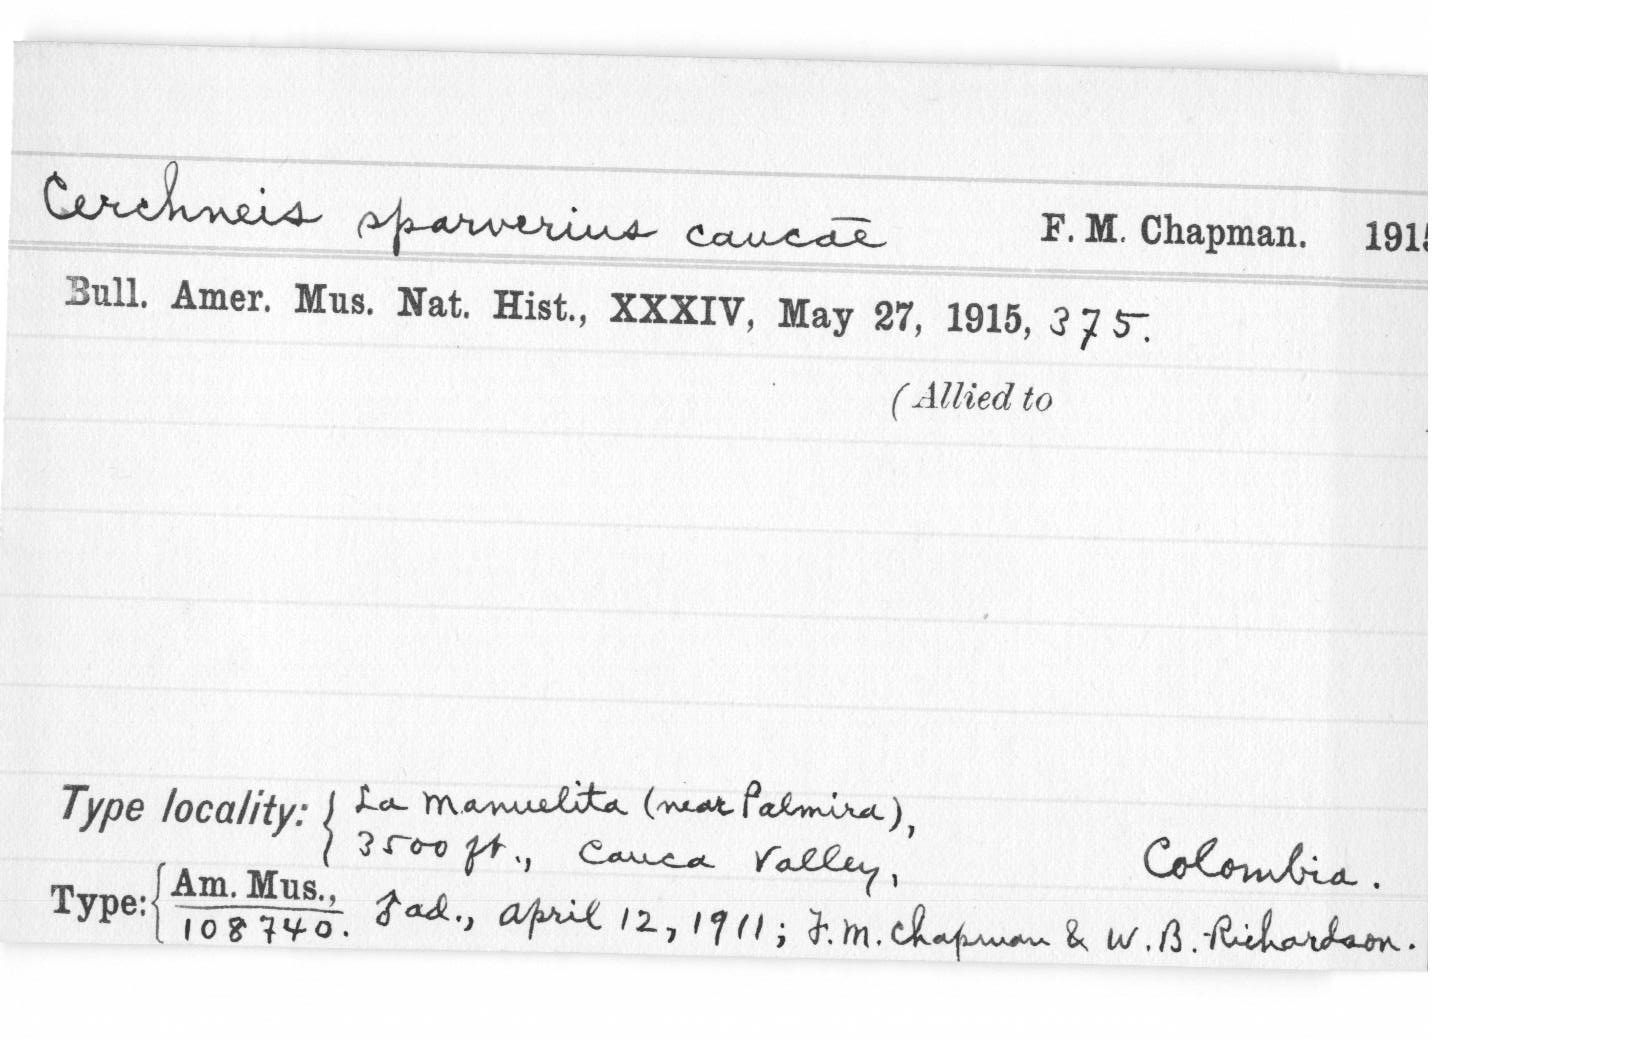 Cerchneis sparverius caucae F. M. Chapman. 1915
Bull. Amer. Mus. Nat. Hist., XXXIV, May 27, 1915, 375.
(Allied to
Type locality: { La Manuelita (near Palmira),
3500 ft., Cauca Valley, Colombia.
Type: { Am. Mus.,
108740. ♂ ad., April 12, 1911; F. M. Chapman & W. B. Richardson.